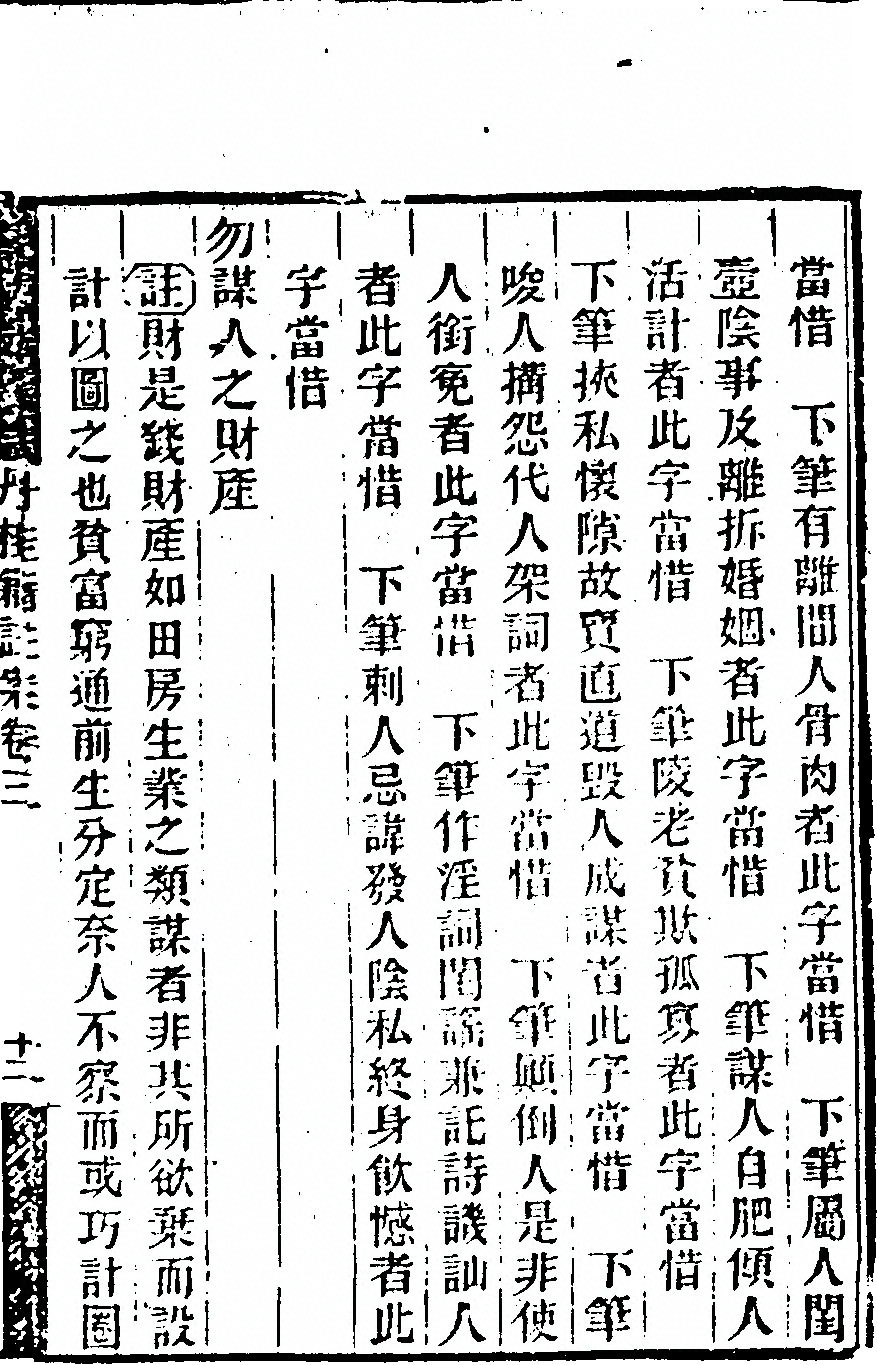 當惜　下筆有離間人骨肉者此字當惜　下筆屬人閨
壼陰事及離拆婚姻者此字當惜　下筆謀人自肥傾人
活計者此字當惜　下筆陵老貧欺孤寡者此字當惜
下筆挾私懷隙故賣直道毀人成謀者此字當惜　下筆
唆人搆怨代人架詞者此字當惜　下筆顛倒人是非使
人銜寃者此字當惜　下筆作淫詞閨謡兼託詩譏訕人
者此字當惜　下筆刺人忌諱發人陰私終身飲憾者此
字當惜
勿謀人之財產
註財是錢財產如田房生業之類謀者非其所欲棄而設
計以圖之也貧富窮通前生分定奈人不察而或巧計圖
丹桂籍註案卷三
十二